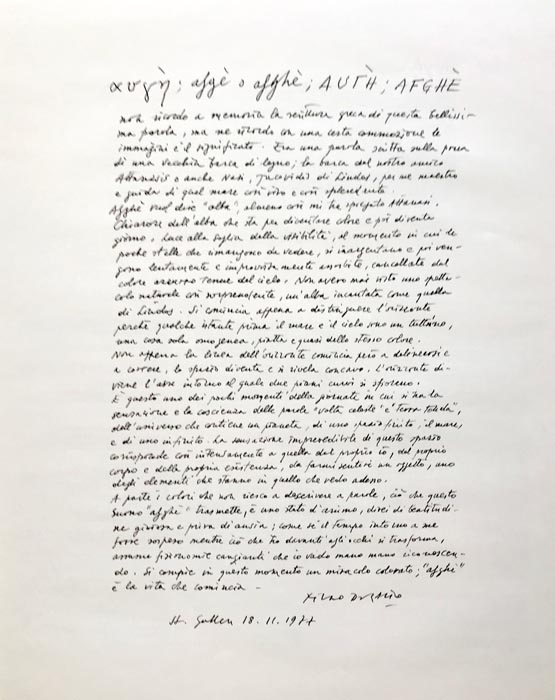 αυγὴ; afgè o afghè; AUTH; AFGHÈ
non ricordo a memoria la scrittura greca di questa bellissi-
ma parola, ma ne ricordo con una certa commozione le
immagini e il significato. Era una parola scritta sulla prua
di una vecchia barca di legno; la barca del nostro amico
Athanasis o anche Nasi, di Lindos, per me maestro
e guida di quel mare così vivo e così splendente.
Afghè vuol dire "alba", almeno così mi ha spiegato Athanasi.
Chiarore dell'alba che sta per diventare colore e poi diventa
giorno. Luce alla soglia della visibilità, al momento in cui le
poche stelle che rimangono da vedere, si inargentano e poi ven-
gono lentamente e improvvisamente assorbite, cancellate dal
colore arancio tenue del cielo. Non avevo mai visto uno spetta-
colo naturale così sorprendente, un'alba incantata come quella
di Lindos. Si comincia appena a distinguere l'orizzonte
perché qualche istante prima il mare e il cielo sono un tutt'uno,
una cosa sola omogenea, piatta e quasi dello stesso colore.
Non appena la linea dell'orizzonte comincia però a delinearsi
e a correre, lo spazio diventa e si rivela concavo. L'orizzonte di-
viene l'asse intorno al quale due piani curvi si sfiorano.
È questo uno dei pochi momenti della giornata in cui si ha la
sensazione e la coscienza delle parole "volta celeste" e "terra rotonda",
dell'universo che contiene un pianeta, di uno spazio finito, il mare,
e di uno infinito. La sensazione imprevedibile di questo spazio
corrisponde così intensamente a quella del proprio io, del proprio
corpo e della propria esistenza, da farmi sentire un oggetto, uno
degli elementi che stanno in quello che vedo adesso.
A parte i colori che non riesco a descrivere a parole, ciò che questo
suono "afghè" trasmette, è uno stato d'animo, direi di beatitudi-
ne gioiosa e priva di ansia; come se il tempo intorno a me
fosse sospeso mentre ciò che ho davanti agli occhi si trasforma,
assume fisionomie cangianti che io vado mano mano riconoscen-
do. Si compie in questo momento un miracolo colorato; "afghè"
è la vita che comincia –
St. Gallen 18.11.1977